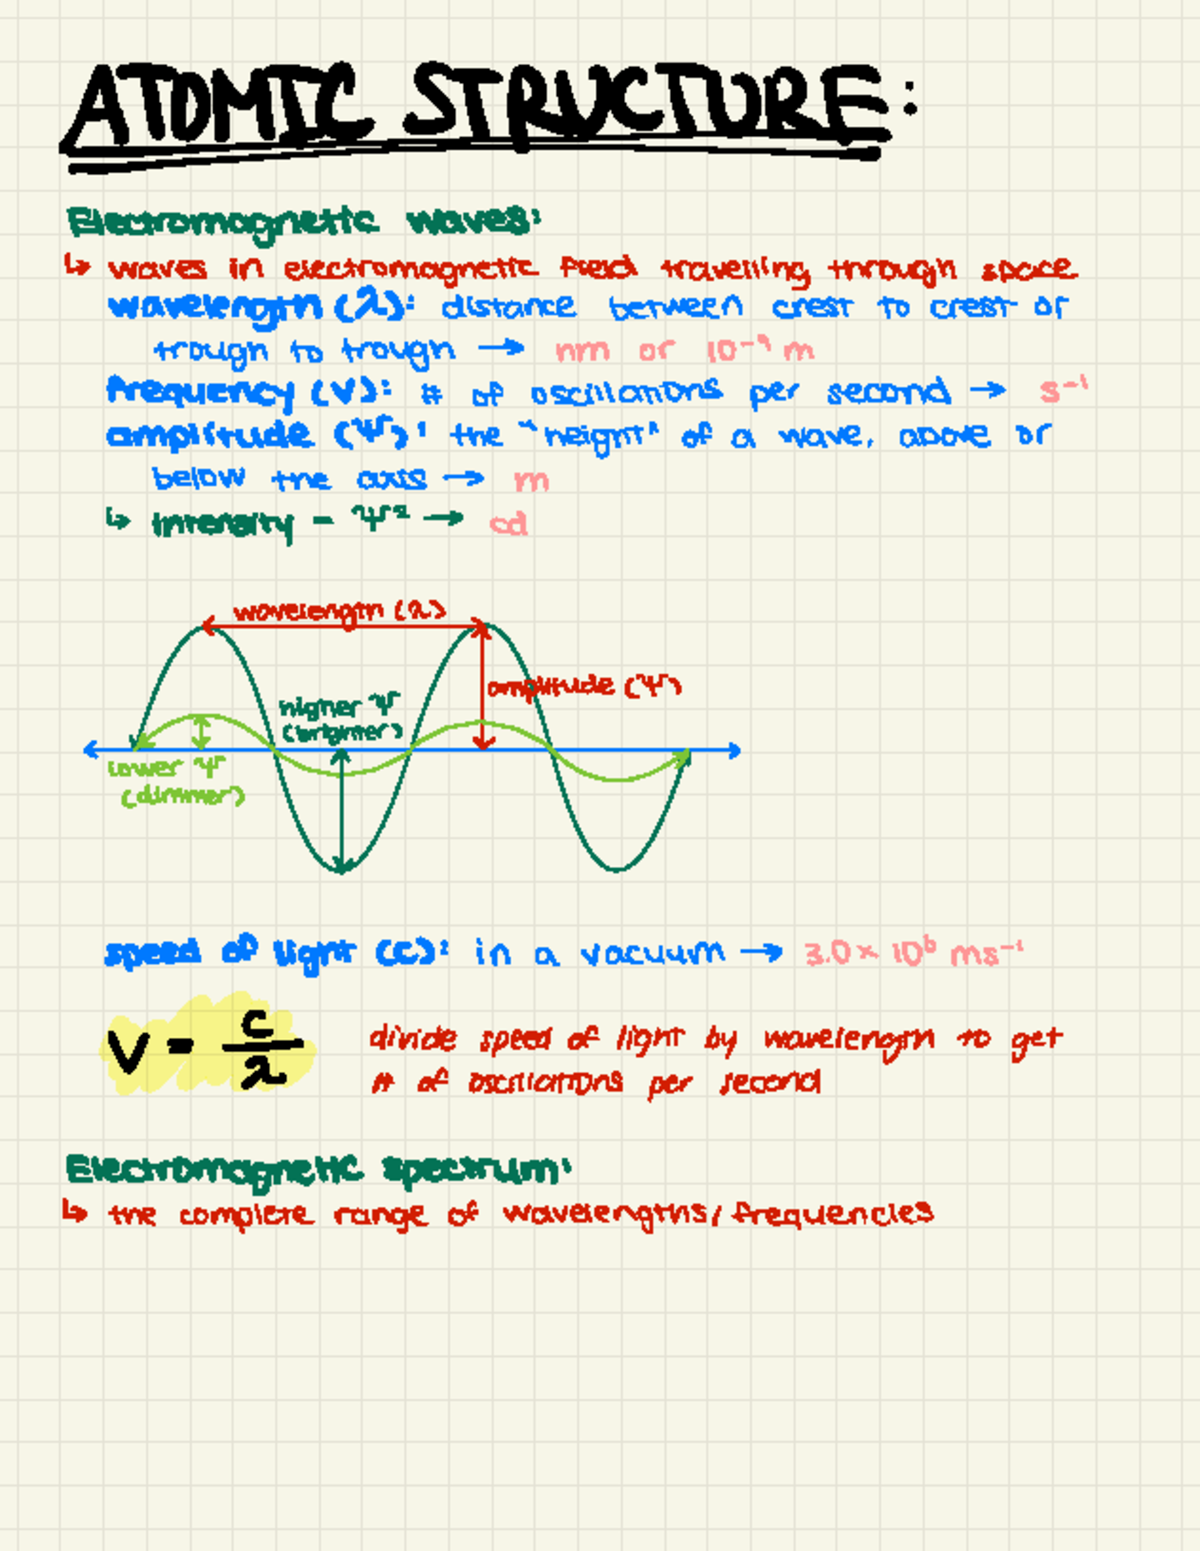 ATOMIC STRUCTURE:
Electromagnetic waves:
↳ waves in electromagnetic field travelling through space
wavelength (λ): distance between crest to crest or
trough to trough → nm or 10⁻⁹ m
frequency (v): # of oscillations per second → s⁻¹
amplitude (Ψ): the "height" of a wave, above or
below the axis → m
↳ Intensity = Ψ² → cd
wavelength (λ)
amplitude (Ψ)
higher Ψ
(brighter)
lower Ψ
(dimmer)
speed of light (c): in a vacuum → 3.0 × 10⁸ ms⁻¹
v = c/λ
divide speed of light by wavelength to get
# of oscillations per second
Electromagnetic spectrum:
↳ the complete range of wavelengths/frequencies